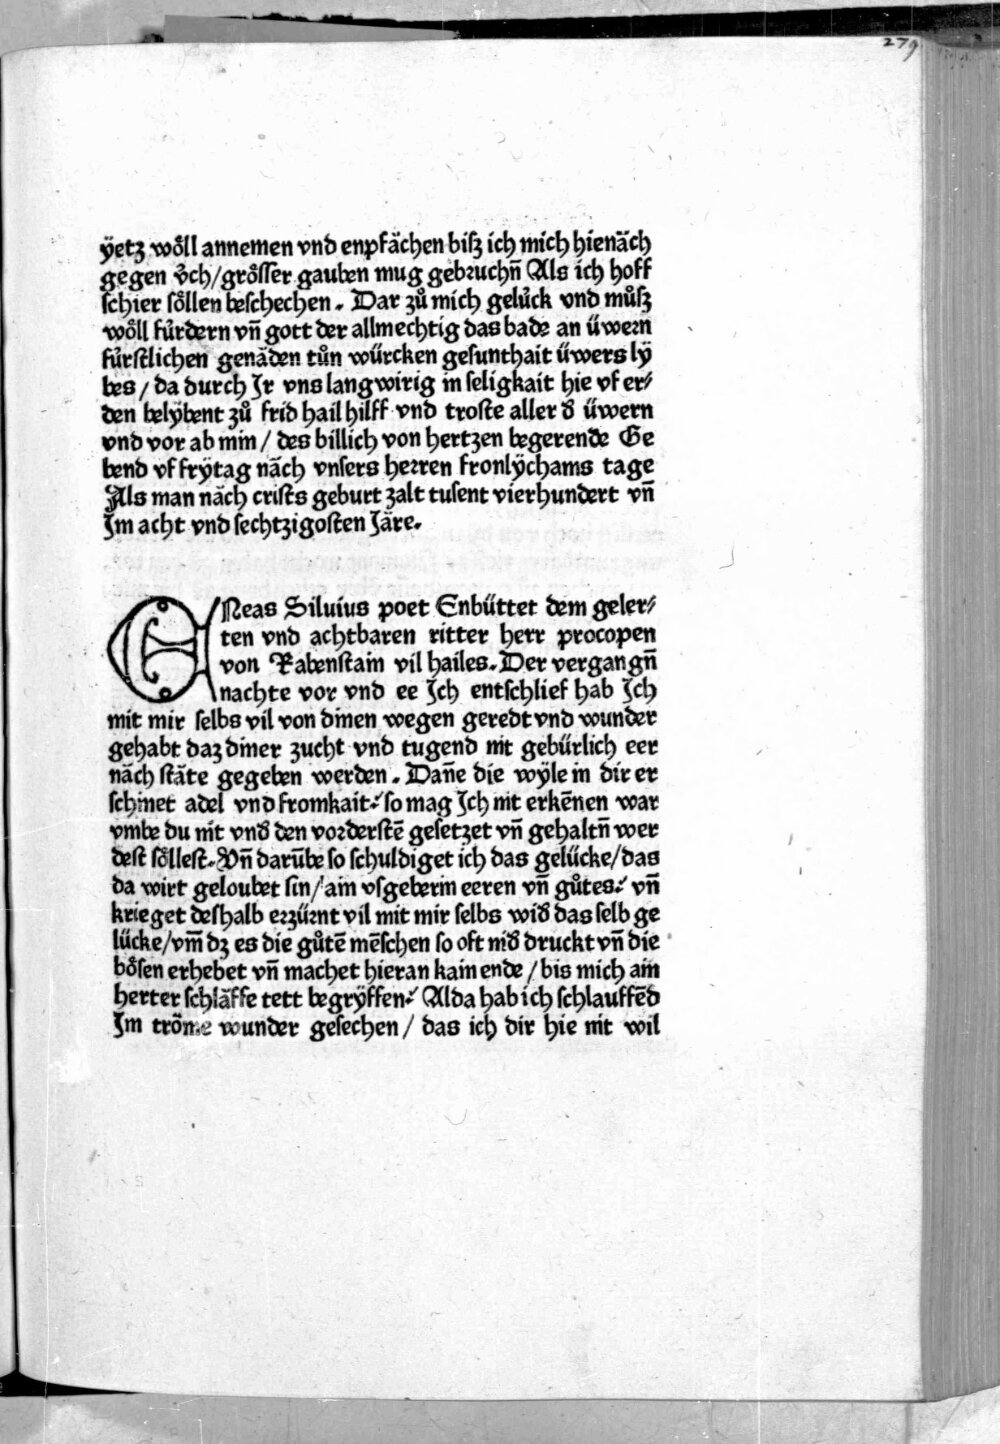 279
ÿetz wo̊ll annemen vnd enpfächen biſz ich mich hienäch
gegen v̊ch/gro̊ſſer gauben mug gebꝛuchn̄ Als ich hoff
ſchier ſo̊llen beſchechen. Dar zů mich gelu̇ck vnd můſz
wo̊ll fu̇rdern vn̄ gott der allmechtig das bade an üweꝛn
fürſtlichen genäden tůn würcken geſunthait üwers lÿ
bes/da durch Jr vns langwirig in ſeligkait hie vf er/
den belÿbent zů frid hail hilff vnd troſte aller ꝺ üwern
vnd vor ab min/des billich von hertzen begerende Ge
bend vf frÿtag näch vnſers heꝛren fronlÿchams tage
Als man näch criſts geburt zalt tuſent vierhundert vn̄
Jm acht vnd ſechtzigoſten Järe.
ENeas Siluius poet Enbüttet dem geler/
ten vnd achtbaren ritter herr procopen
von Rabenſtain vil hailes. Der vergangn̄
nachte vor vnd ee Jch entſchlief hab Jch
mit mir ſelbs vil von dinen wegen geredt vnd wunder
gehabt daz diner zucht vnd tugend nit gebürlich eer
näch ſtäte gegeben werden. Dan̄e die wÿle in dir er
ſchinet adel vnd fromkait: ſo mag Jch nit erkēnen war
vmbe du nit vnꝺ den voꝛderſtē geſetzet vn̄ gehaltn̄ wer
deſt ſo̊lleſt. Vn̄ darūbe ſo ſchuldiget ich das gelücke/das
da wirt geloubet ſin/ain vſgeberin eeren vn̄ gůtes: vn̄
krieget deſhalb erzüꝛnt vil mit mir ſelbs wiꝺ das ſelb ge
lücke/vm̄ dz es die gůtē mēſchen ſo oft niꝺ druckt vn̄ die
bo̊ſen erhebet vn̄ machet hieran kain ende/bis mich ain
herter ſchläffe tett begrÿffen: Alda hab ich ſchlauffēd
Jm tröme wunder geſechen/das ich dir hie nit wil